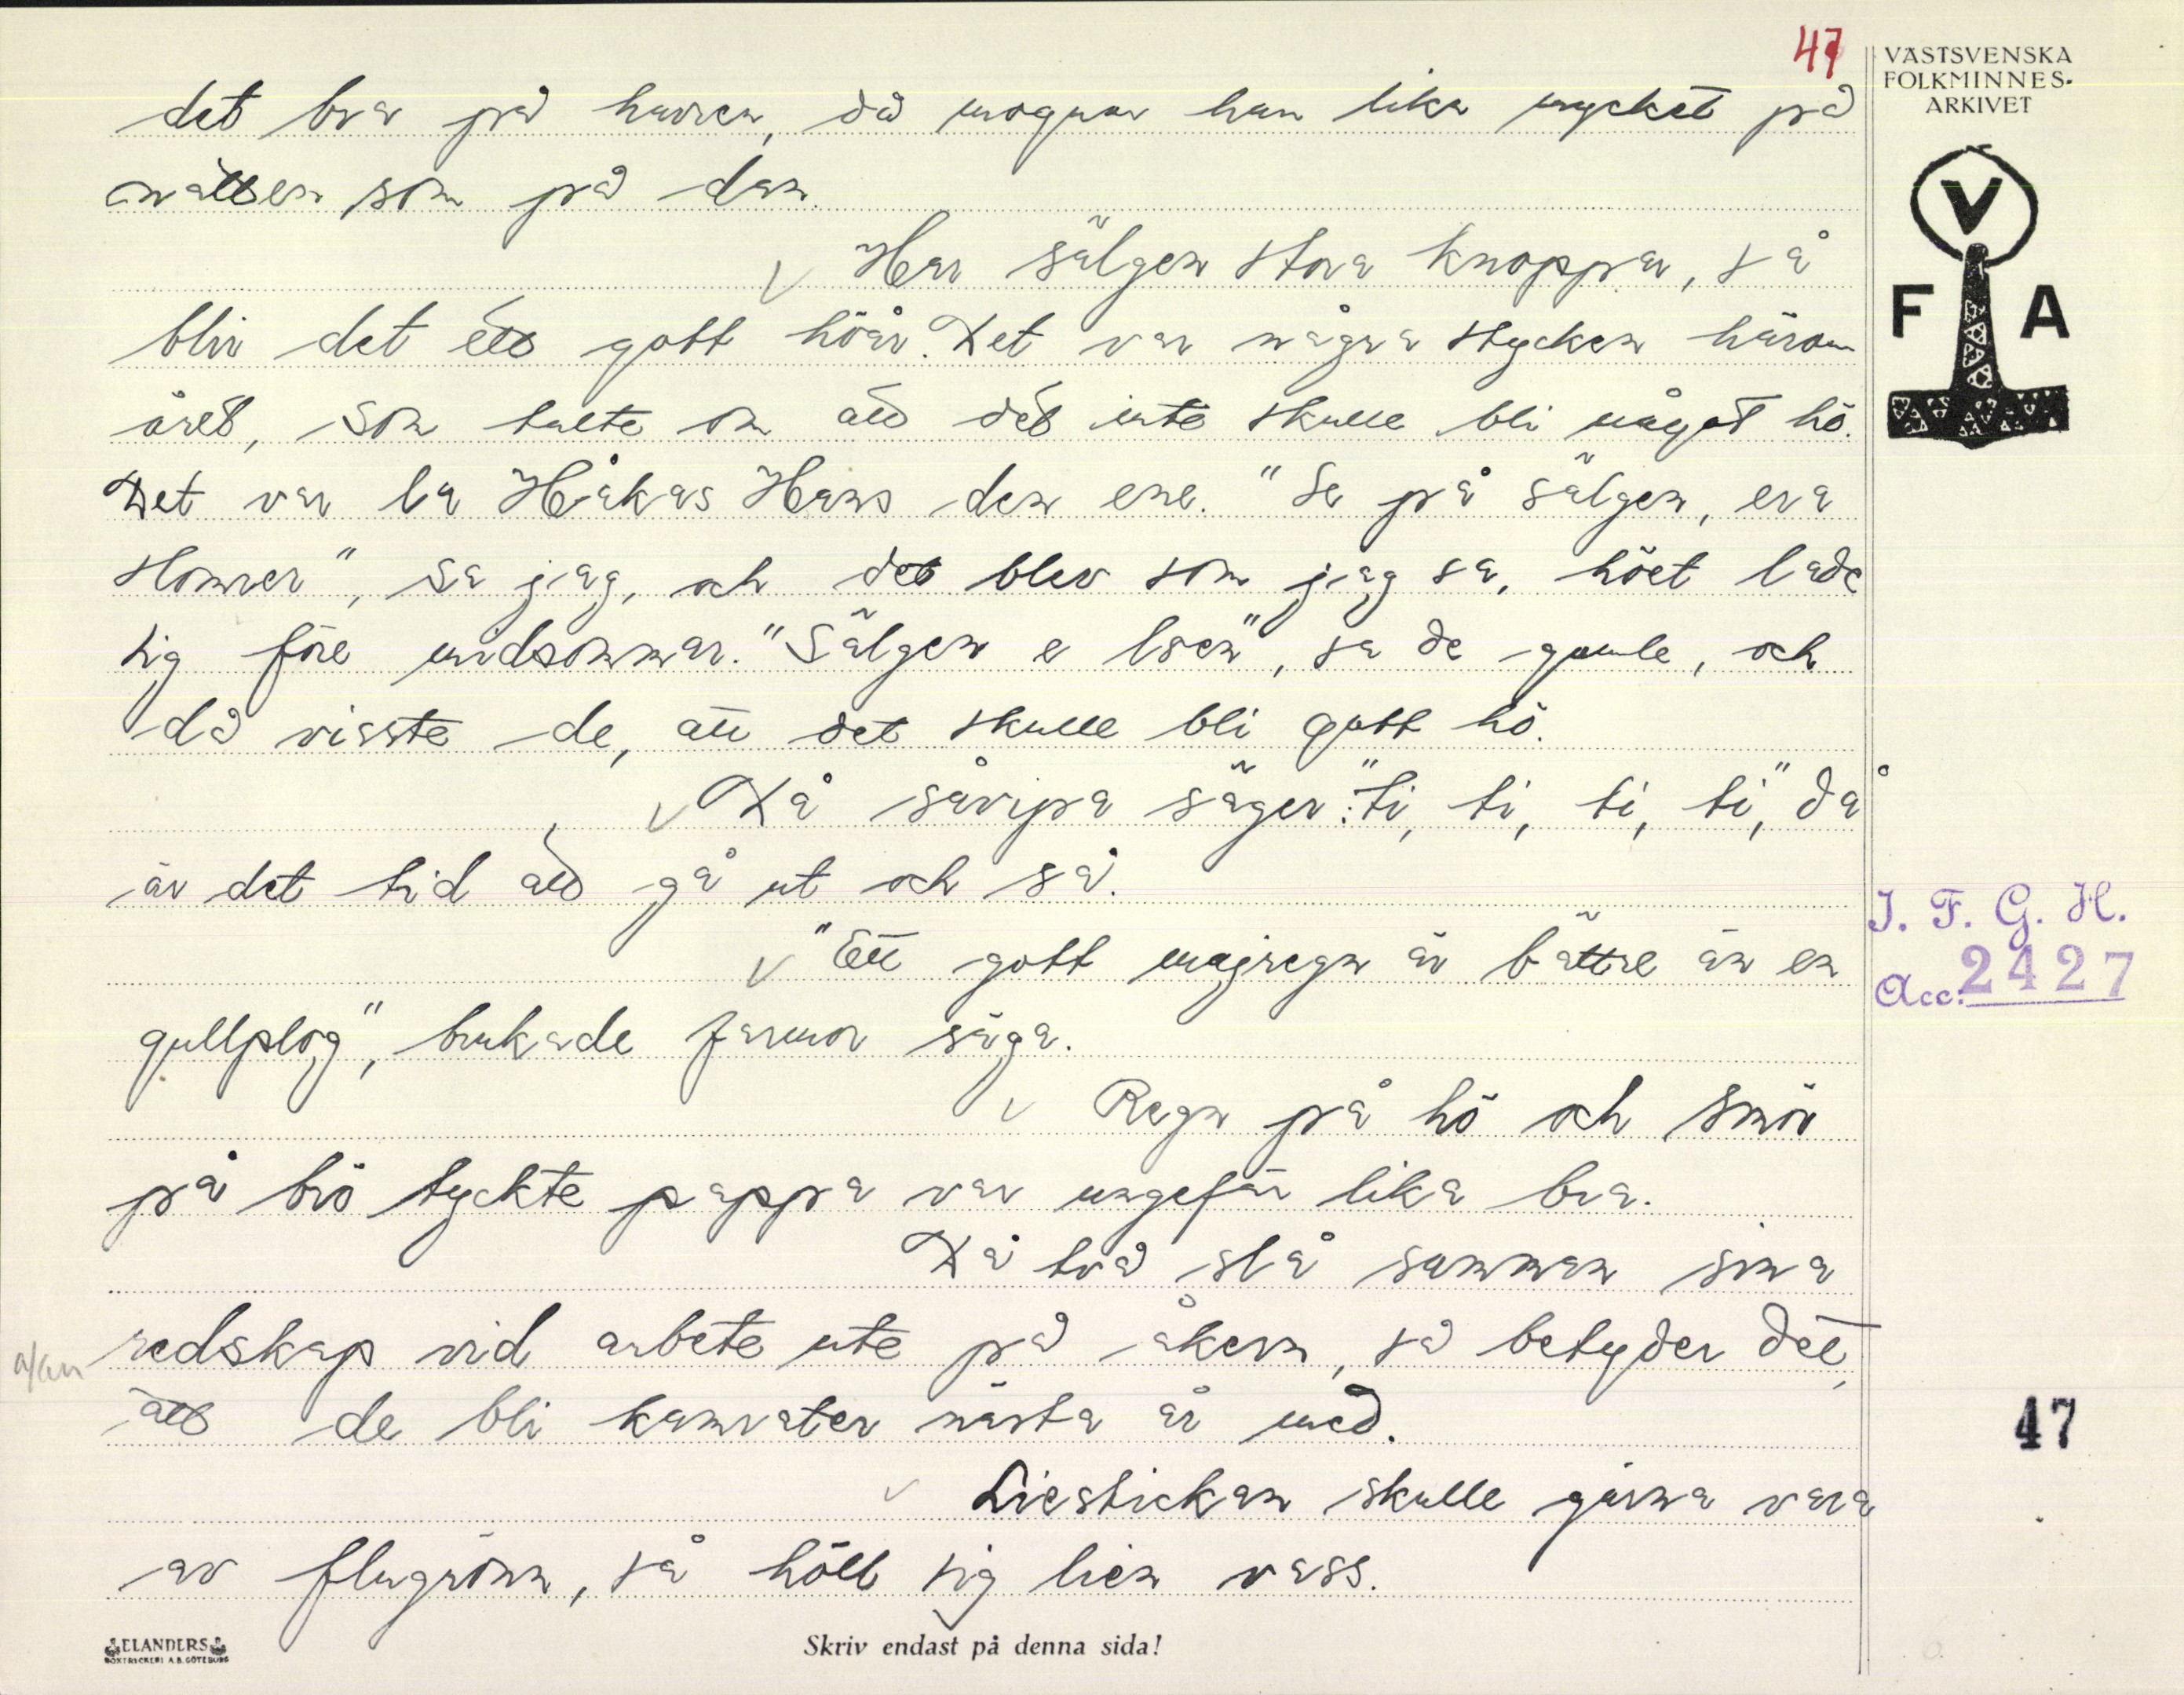 47
VÄSTSVENSKA
FOLKMINNES-
ARKIVET
V
F A
det bra på havren, då mognar han lika mycket på
natten som på dan.
Har sälgen stora knoppar, så
blir det ett gott höår. Det var några stycken härom
året, som talte om att det inte skulle bli något hö.
Det var la Håkas Hans den ene. "Se på sälgen, era
stommer", sa jag, och det blev som jag sa, höet lade
sig före midsommar. "Sälgen e lsen", sa de gamle, och
då visste de, att det skulle bli gott hö.
Då såripa säger: "ti, ti, ti, ti," då
är det tid att gå ut och så.
"Ett gott majregn är bättre än en
gullplog", brukade farmor säga.
Regn på hö och smör
på brö tyckte pappa var ungefär lika bra.
Då två slå samman sina
redskap vid arbete ute på åkern, så betyder det,
att de bli kamrater nästa år med.
Liestickan skulle gärna vara
av flugrönn, så höll sig lien vass.
I. F. G. H.
Acc: 2427
47
ELANDERS
BOKTRYCKERI A.B. GÖTEBORG
Skriv endast på denna sida!